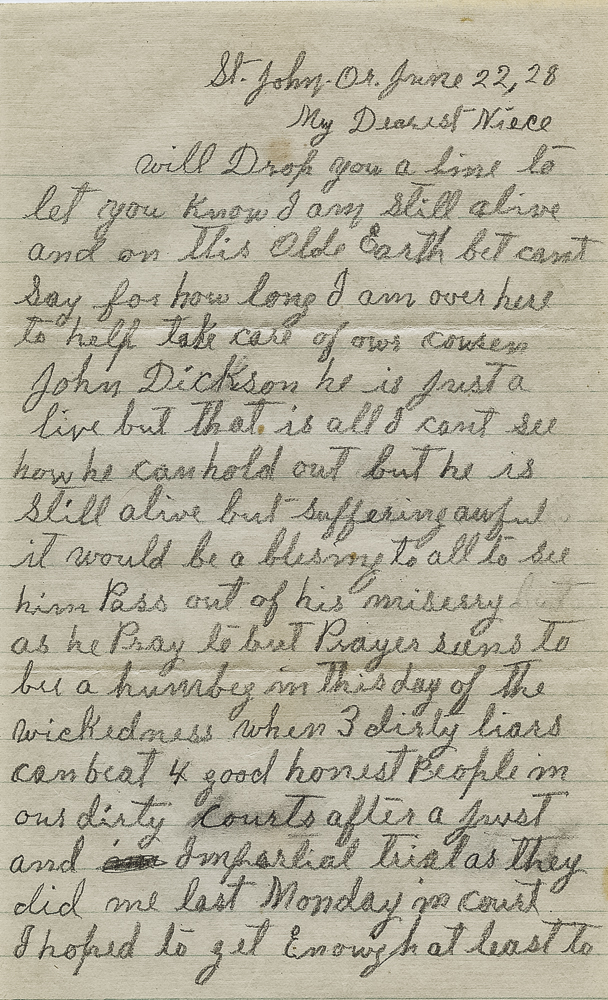 St. John. Or. June 22, 28
My Dearest Niece
will Drop you a line to
let you know I am still alive
and on this Olde Earth bet cant
say for how long I am over here
to help take care of our cousen
John Dickson he is Just a
live but that is all I cant see
how he can hold out but he is
still alive but suffering awful
it would be a blesing to all to see
him Pass out of his miserry but
as he Pray to but Prayer seems to
bee a humbeg in this day of the
wickedness when 3 dirty liars
can beat 4 good honest People in
our dirty courts after a just
and Impartial trial as they
did me last Monday in court
I hoped to get Enough at least to